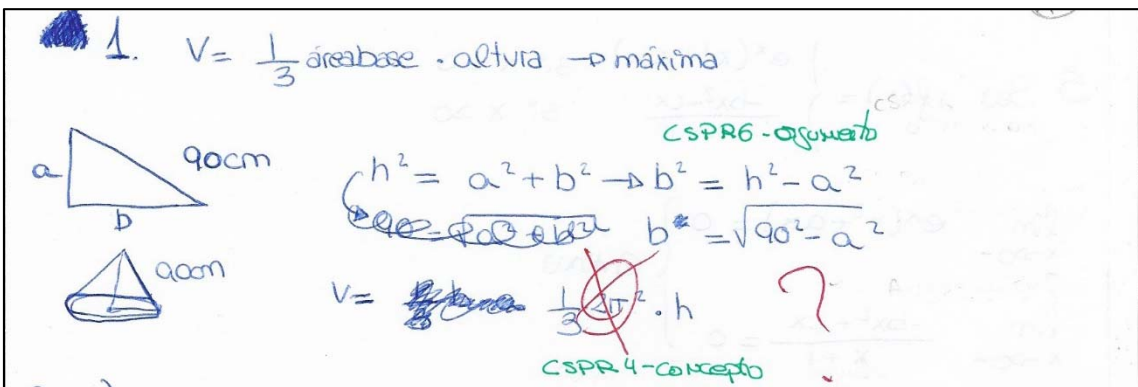 1. V = 1/3 áreabase · altura → máxima
CSPR6 - argumento
a 90cm h² = a² + b² → b² = h² - a²
b b = √90² - a²
90cm
V = 1/3 π² · h ?
CSPR4 - concepto